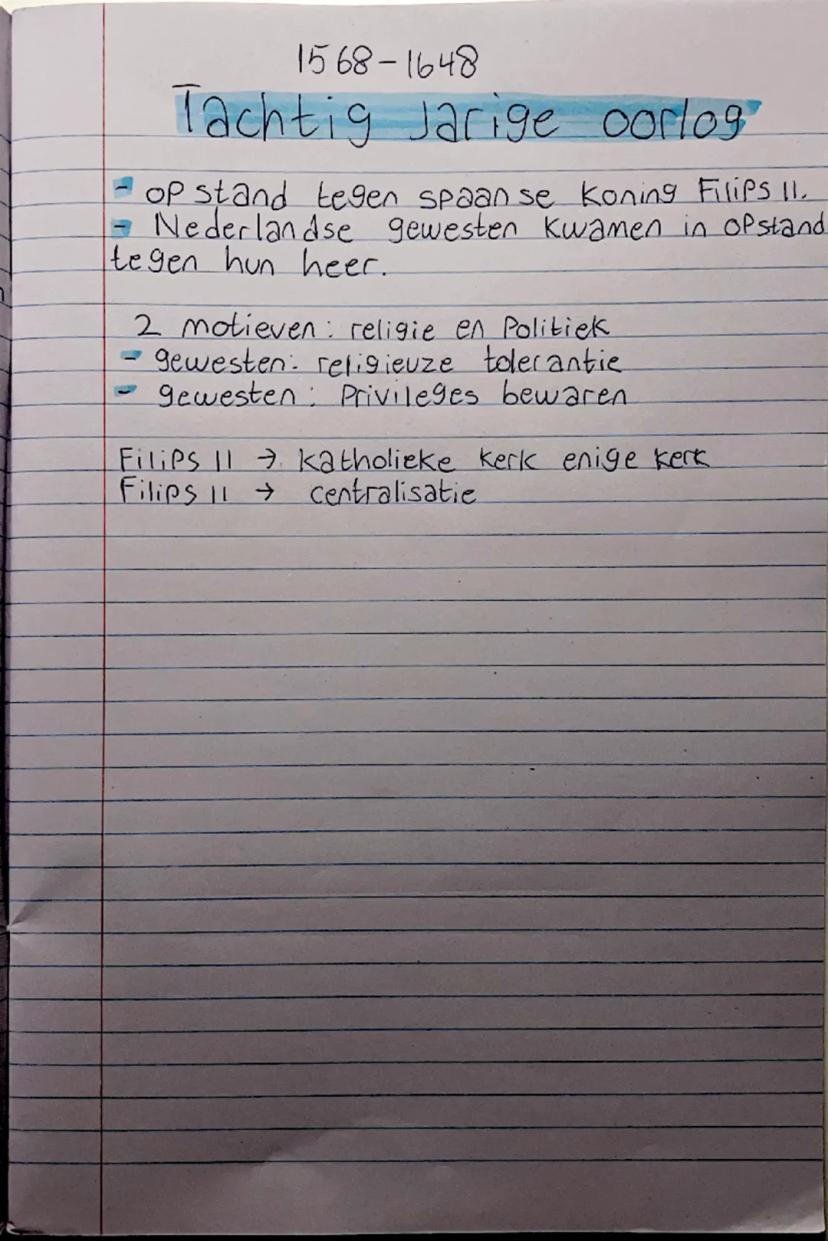 1568-1648
Tachtig Jarige oorlog
- opstand tegen spaanse koning Filips II.
- Nederlandse gewesten kwamen in opstand
tegen hun heer.
2 motieven: religie en Politiek
- gewesten: religieuze tolerantie
- gewesten: Privileges bewaren
Filips II → katholieke kerk enige kerk
Filips II → centralisatie